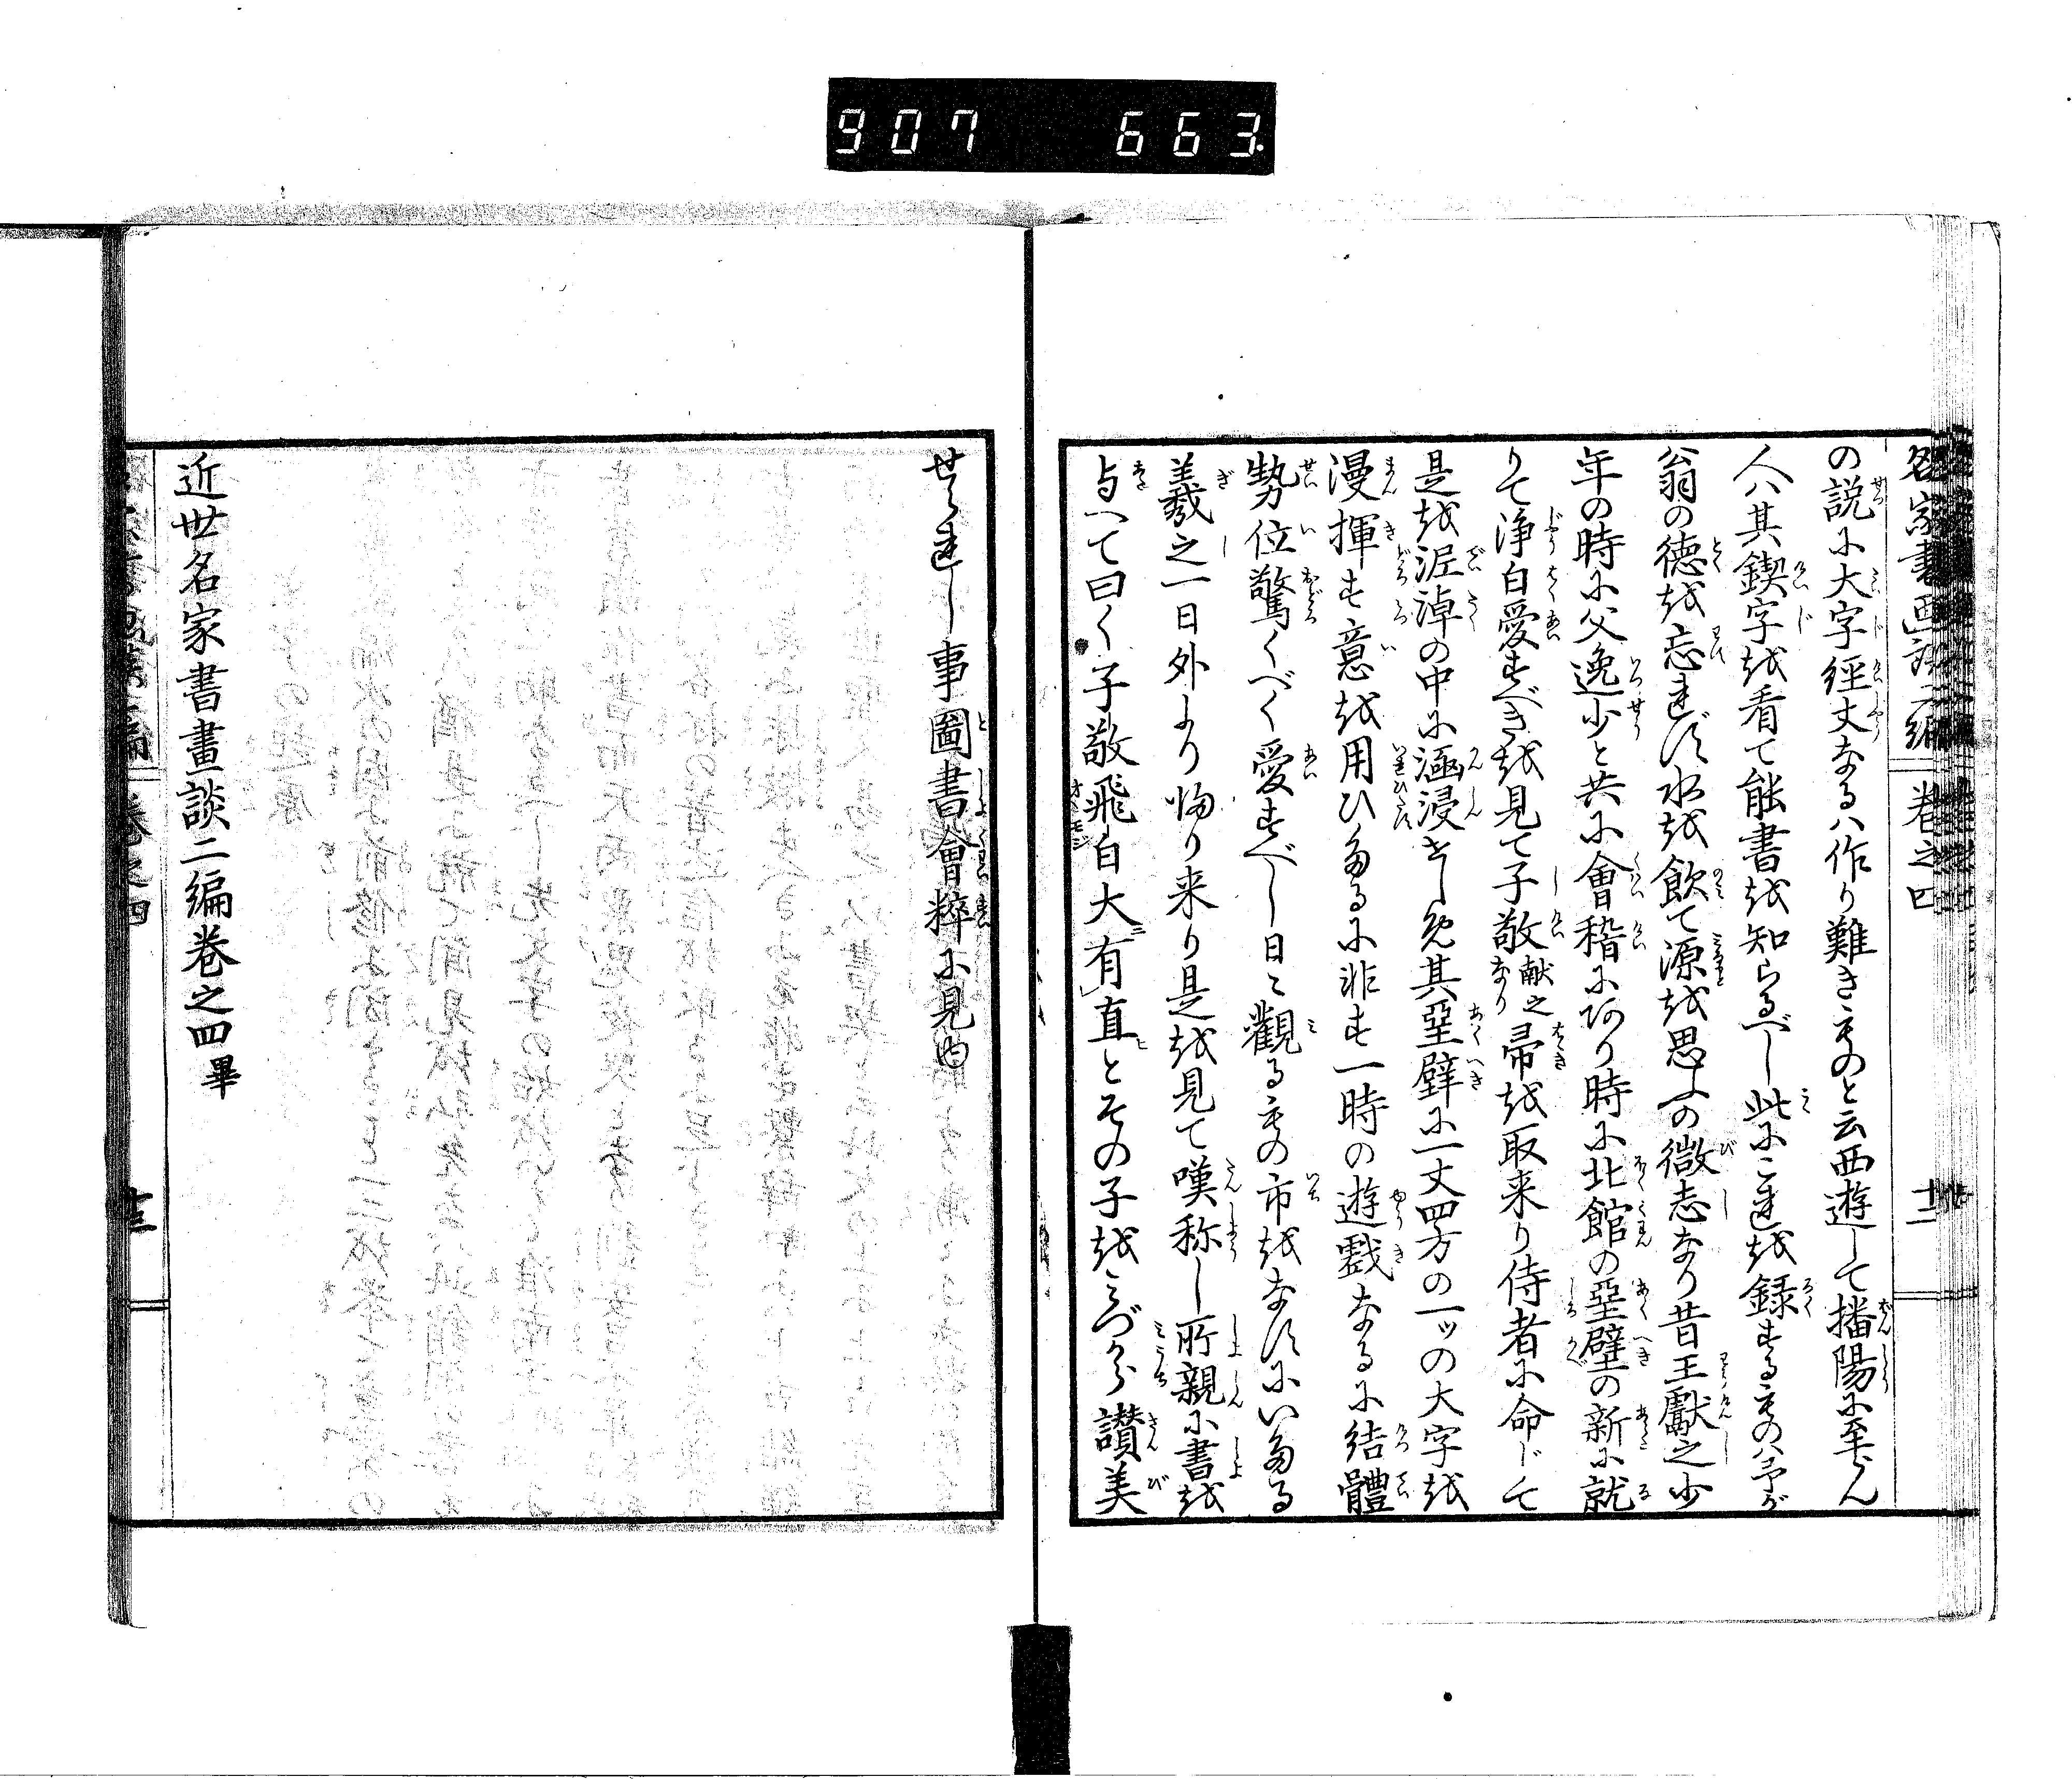 907 663
名家書画談二編 巻之四 十二
の説に大字径丈なるハ作り難きものと云西遊して播陽に至らん
人ハ其鍥字を看て能書を知らるべし此にこれを録するものハ予が
翁の徳を忘れず水を飲て源を思ふの微志なり昔王獻之少
年の時に父逸少と共に會稽にあり時に北館の堊壁の新に就
りて浄白愛すべきを見て子敬献之なり帚を取来り侍者に命じて
是を泥淖の中に涵浸せしめ其堊壁に一丈四方の一ッの大字を
漫揮す意を用ひたるに非す一時の遊戯なるに結體
勢位驚くべく愛すべし日々觀るもの市をなすにいたる
羲之一日外より帰り来り是を見て嘆称し所親に書を
与へて曰く子敬飛白大有直とその子をみづから讃美
せられし事圖書會粹に見ゆ
近世名家書畫談二編巻之四畢